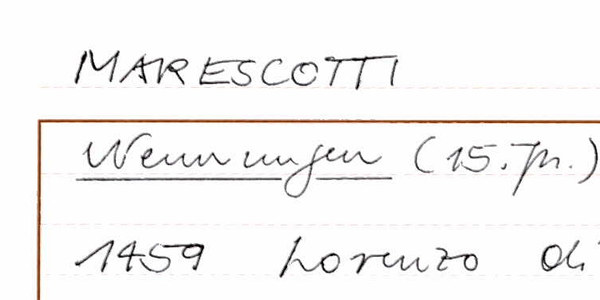 MARESCOTTI
Nennungen (15. Jh.)
1459 Lorenzo di